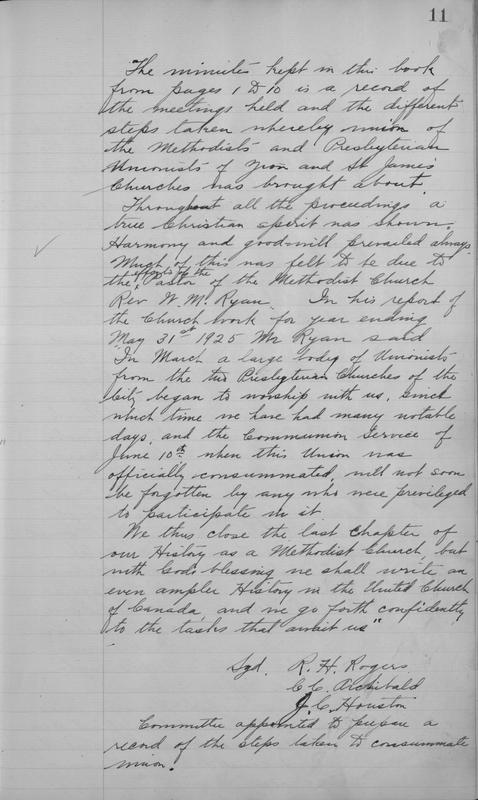 11
The minutes kept in this book
from pages 1 to 10 is a record of
the meetings held and the different
steps taken whereby union of
the Methodists and Presbyterian
Unionists of Zion and St James
Churches was brought about.
Throughout all the proceedings a
true Christian spirit was shown.
Harmony and goodwill prevailed always.
Much of this was felt to be due to
efforts of the
the Pastor of the Methodist Church
Rev W. M. Ryan. In his report of
the Church work for year ending
May 31st 1925 Mr Ryan said
In March a large body of Unionists
from the two Presbyterian Churches of the
City began to worship with us, since
which time we have had many notable
days, and the Communion Service of
June 10th when this Union was
officially consummated, will not soon
be forgotten by any who were previleged
to participate in it.
We thus close the last chapter of
our History as a Methodist Church, but
with God's blessing we shall write an
even ampler History in the United Church
of Canada, and we go forth confidently
to the tasks that await us"
Sgd. R. H. Rogers
C. C. Archibald
J. C. Houston
Committee appointed to prepare a
record of the steps taken to consummate
union.